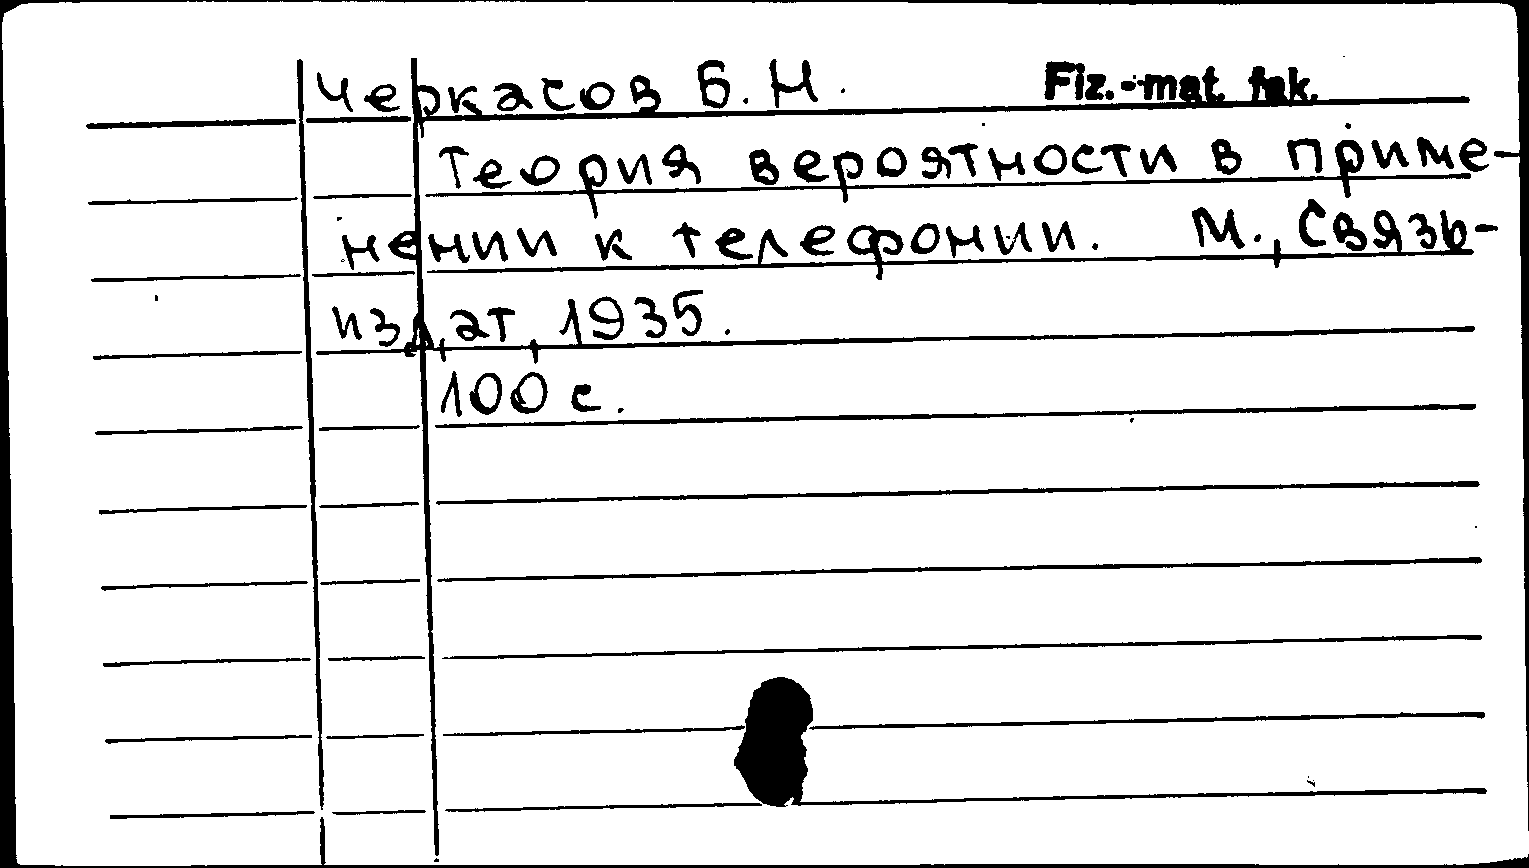 Черкасов Б. Н. Fiz.-mat. fak.
Теория вероятности в приме-
нении к телефонии. М., Связь-
издат, 1935.
100 с.